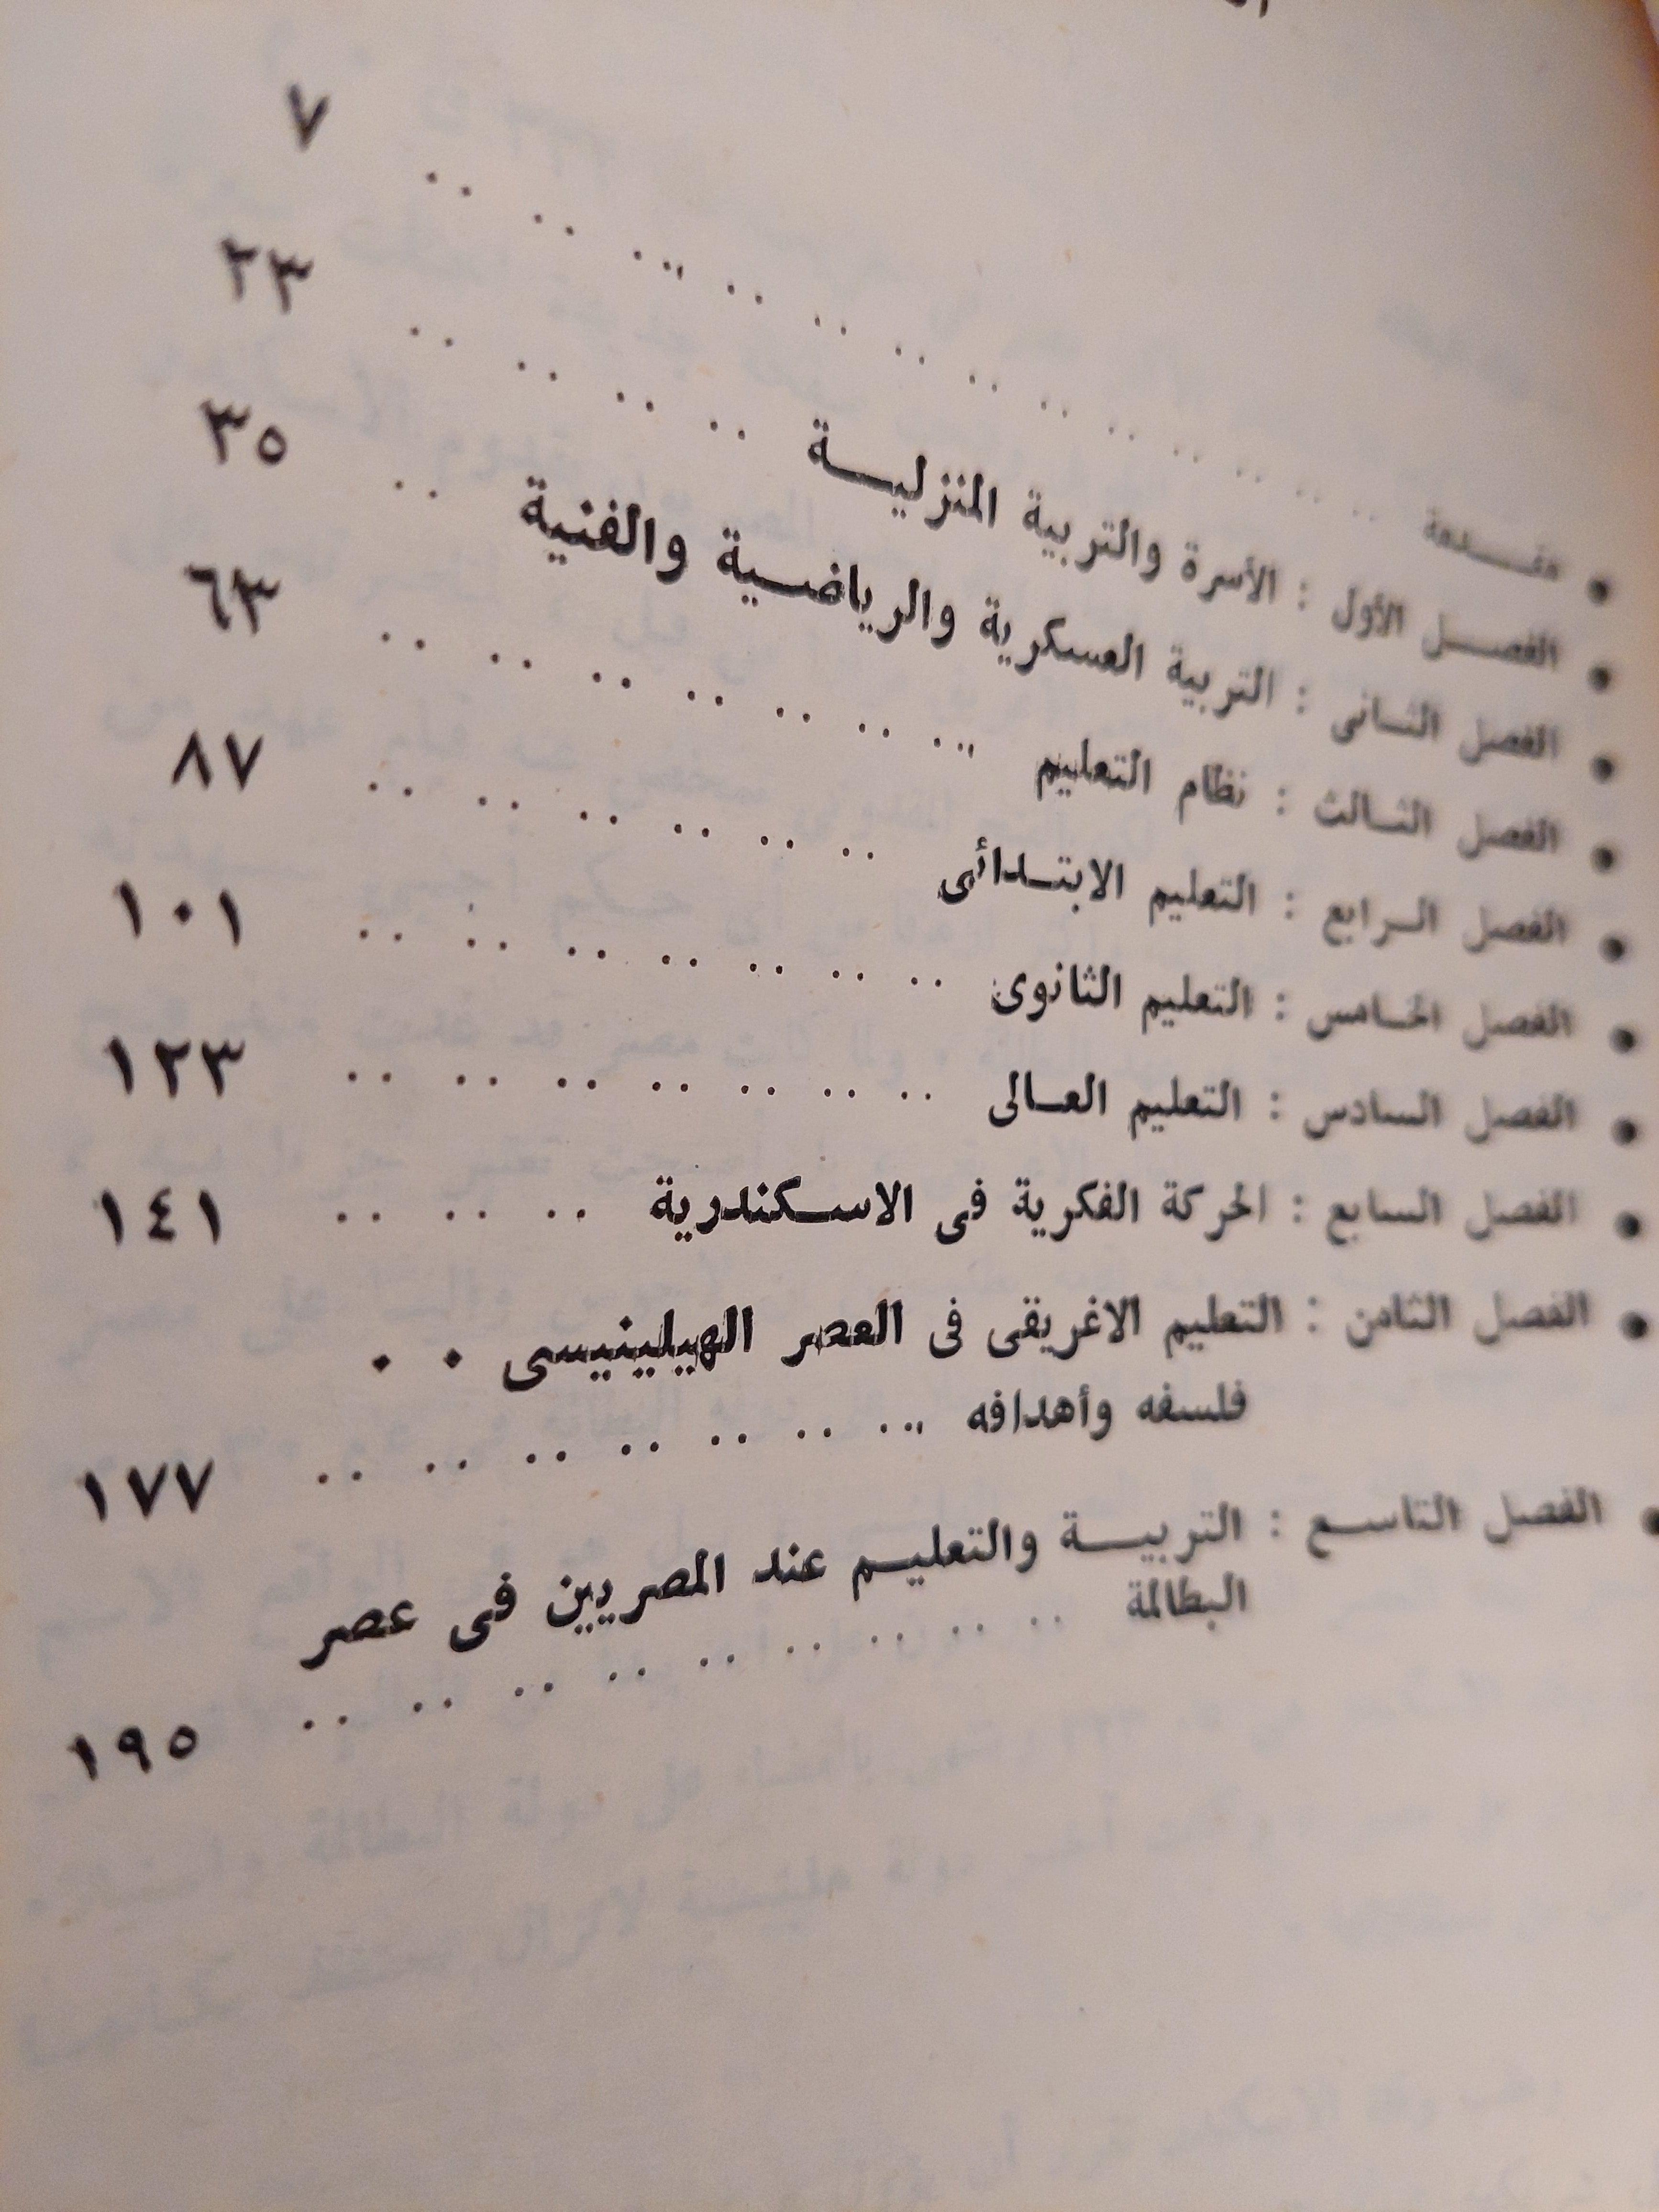 مقـــدمة .. .. .. .. .. .. .. .. .. .. .. .. .. ٧
الفصــل الأول : الأسرة والتربية المنزليــة .. .. .. .. ٢٣
الفصل الثـانى : التربية العسكرية والرياضـية والفنية .. ٣٥
الفصل الثـالث : نظام التعليم .. .. .. .. .. .. .. ٦٣
الفصل الـرابع : التعليم الابتـدائى .. .. .. .. .. .. ٨٧
الفصل الخـامس : التعليم الثانوى .. .. .. .. .. .. .. ١٠١
الفصل السادس : التعليم العـالى .. .. .. .. .. .. .. ١٢٣
الفصل السابع : الحركة الفكرية فى الاسـكندرية .. .. .. ١٤١
الفصل الثامن : التعليم الاغريقى فى العصر الهيلينيسى . .
فلسفه وأهدافه .. .. .. .. .. .. .. ١٧٧
الفصل التاسـع : التربيــة والتعليـم عند المصريين فى عصر
البطالمة .. .. .. .. .. .. .. .. ١٩٥